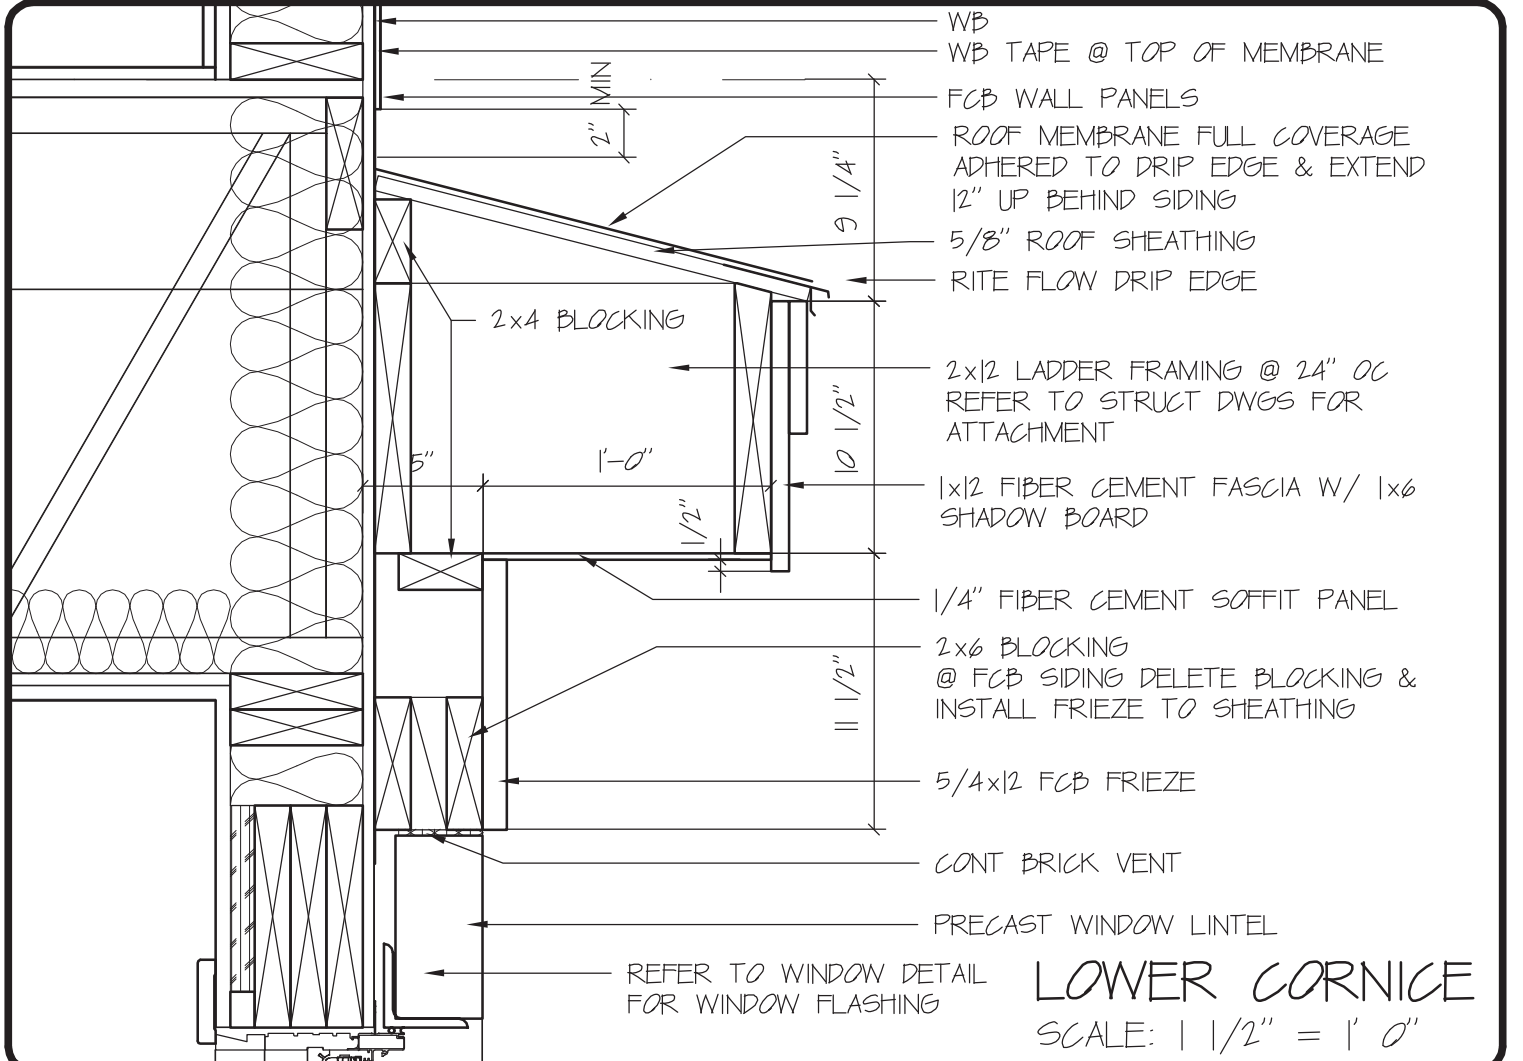 WB
WB TAPE @ TOP OF MEMBRANE
2" MIN
FCB WALL PANELS
ROOF MEMBRANE FULL COVERAGE
ADHERED TO DRIP EDGE & EXTEND
12" UP BEHIND SIDING
9 1/4"
5/8" ROOF SHEATHING
RITE FLOW DRIP EDGE
2x4 BLOCKING
2x12 LADDER FRAMING @ 24" OC
REFER TO STRUCT DWGS FOR
ATTACHMENT
10 1/2"
5"
1'-0"
1x12 FIBER CEMENT FASCIA W/ 1x6
SHADOW BOARD
1/2"
1/4" FIBER CEMENT SOFFIT PANEL
2x6 BLOCKING
@ FCB SIDING DELETE BLOCKING &
INSTALL FRIEZE TO SHEATHING
11 1/2"
5/4x12 FCB FRIEZE
CONT BRICK VENT
PRECAST WINDOW LINTEL
REFER TO WINDOW DETAIL
FOR WINDOW FLASHING
LOWER CORNICE
SCALE: 1 1/2" = 1' 0"